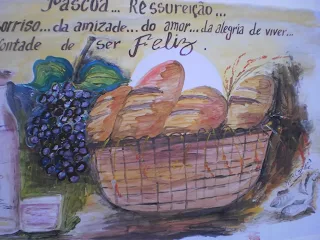 Páscoa... Ressureição...
sorriso...da amizade...do amor...da alegria de viver...
Vontade de ser Feliz.